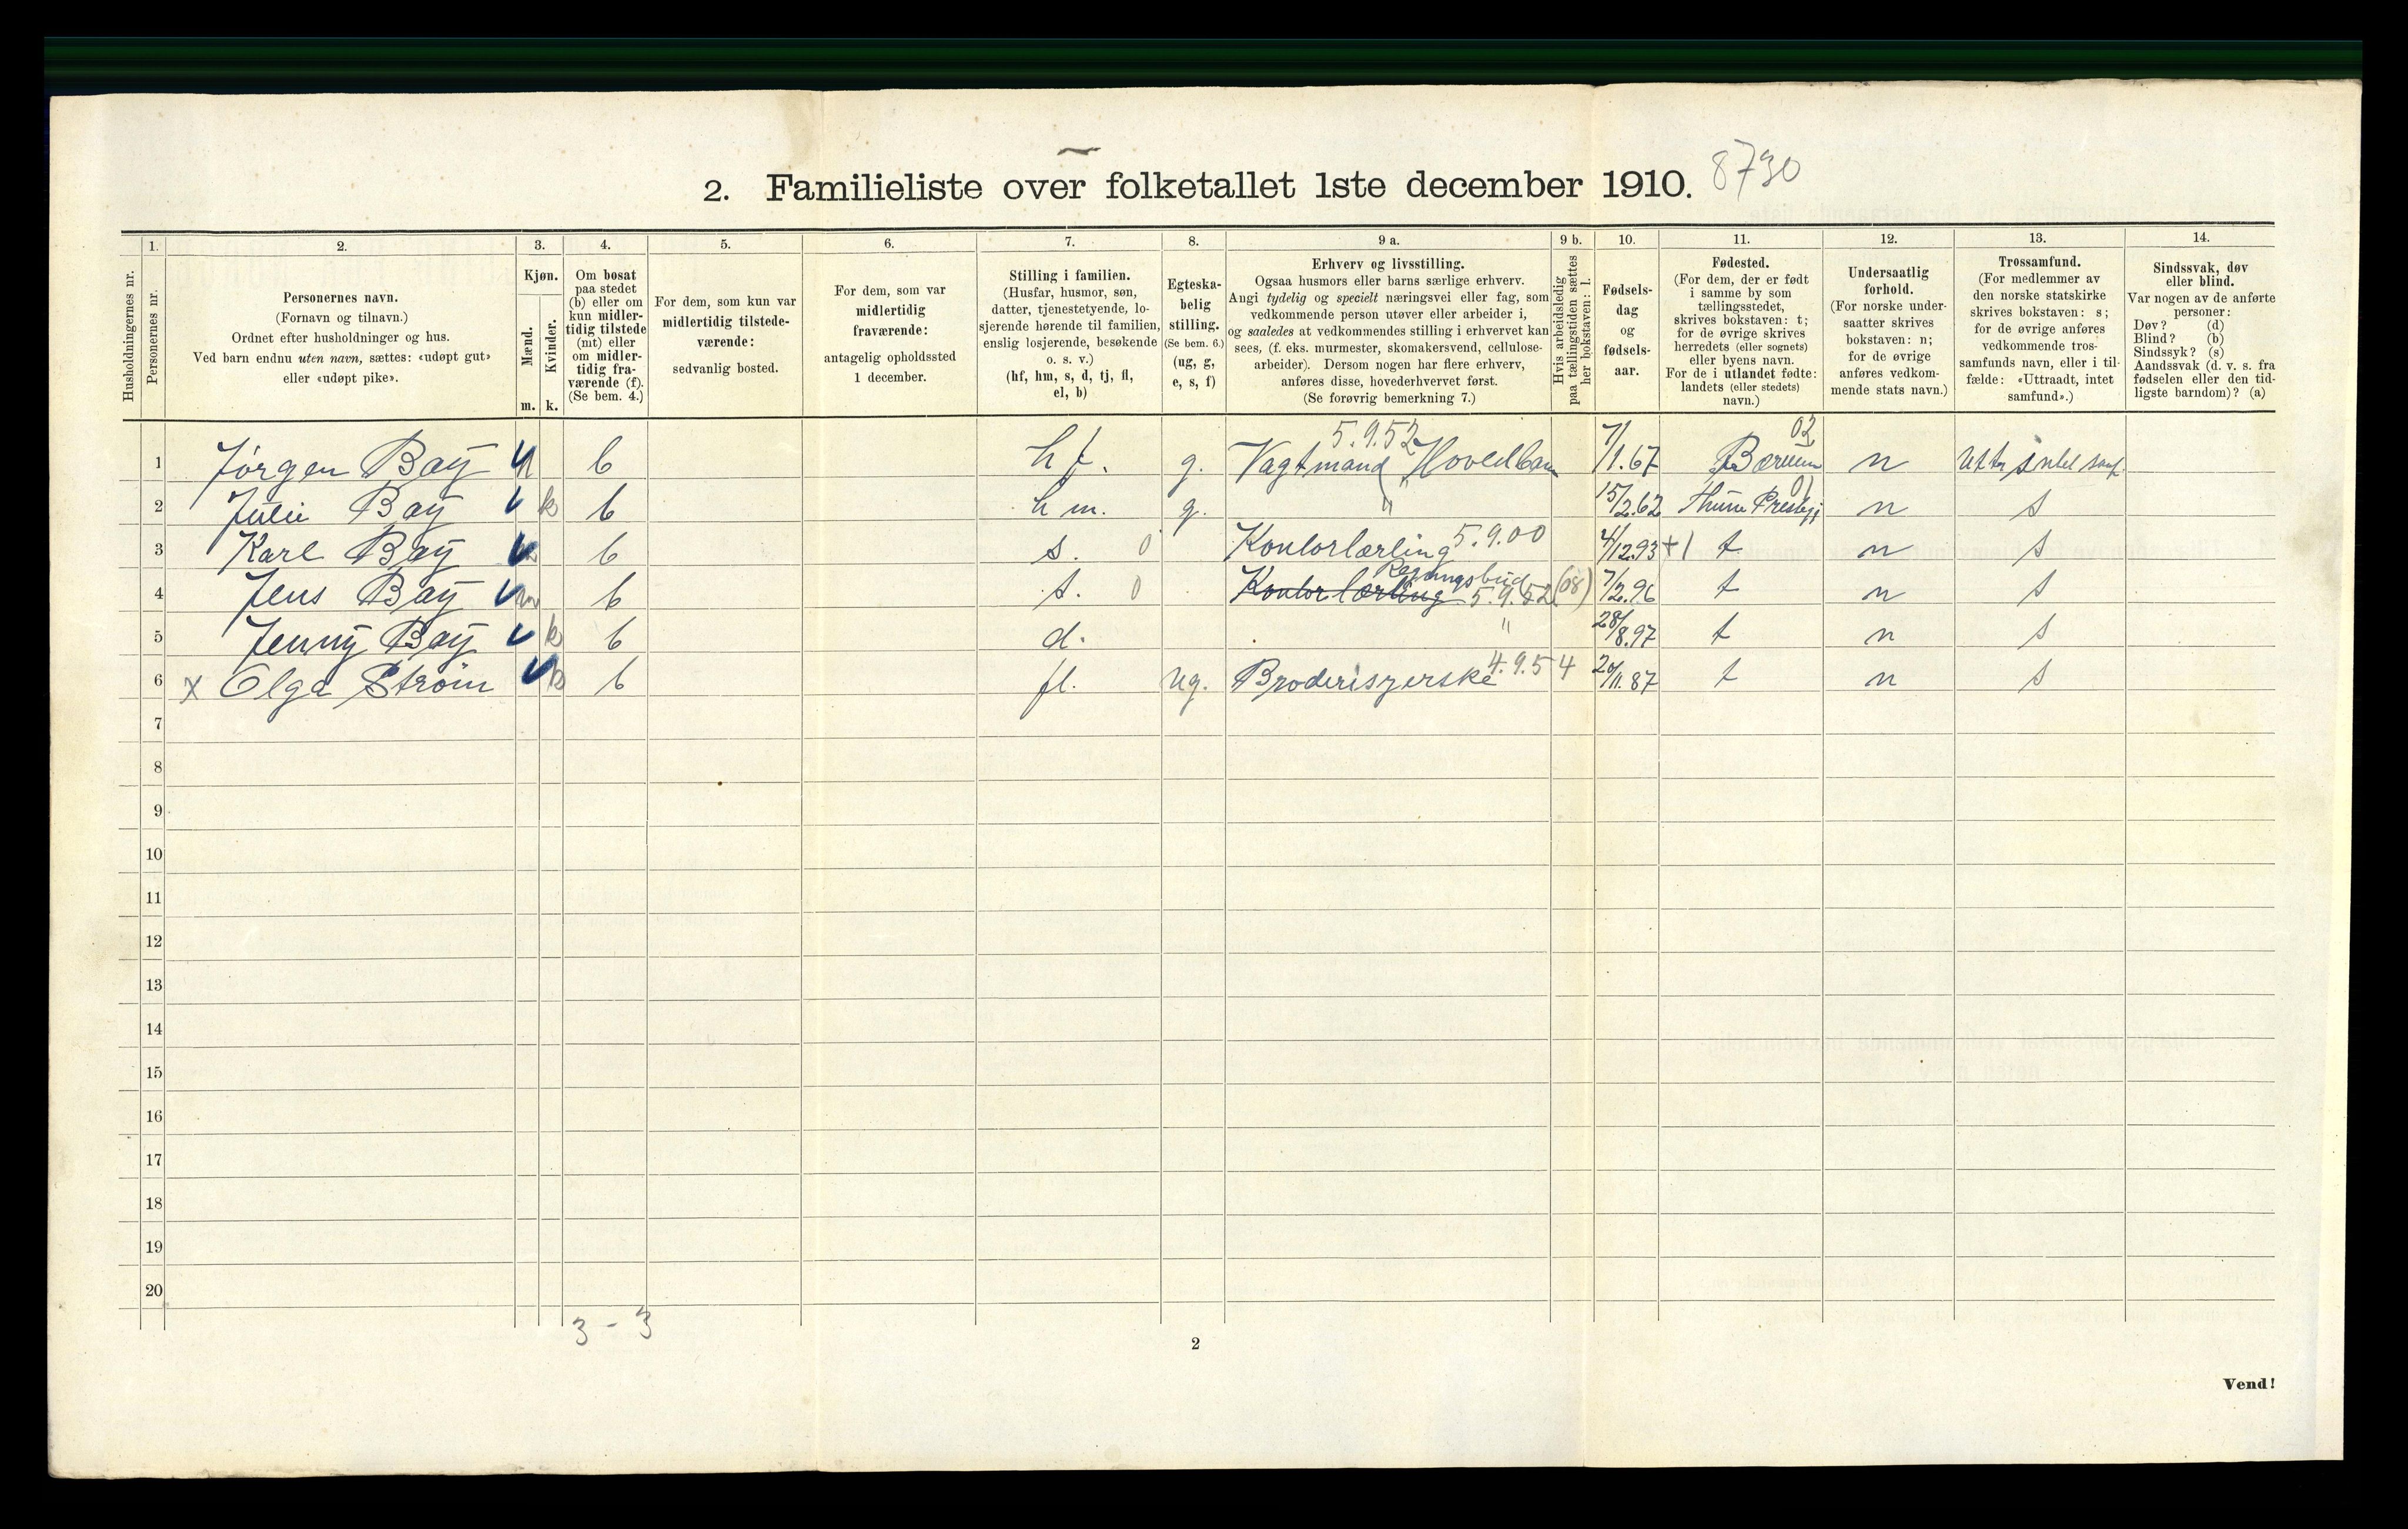 2. Familieliste over folketallet 1ste december 1910. 8730
Husholdningernes nr.
1.
Personernes nr.
2.
Personernes navn.
(Fornavn og tilnavn.)
Ordnet efter husholdninger og hus.
Ved barn endnu uten navn, sættes: «udøpt gut»
eller «udøpt pike».
3.
Kjøn.
Mænd.
Kvinder.
m. k.
4.
Om bosat
paa stedet
(b) eller om
kun midler-
tidig tilstede
(mt) eller
om midler-
tidig fra-
værende (f).
(Se bem. 4.)
5.
For dem, som kun var
midlertidig tilstede-
værende:
sedvanlig bosted.
6.
For dem, som var
midlertidig
fraværende:
antagelig opholdssted
1 december.
7.
Stilling i familien.
(Husfar, husmor, søn,
datter, tjenestetyende, lo-
sjerende hørende til familien,
enslig losjerende, besøkende
o. s. v.)
(hf, hm, s, d, tj, fl,
el, b)
8.
Egteska-
belig
stilling.
(Se bem. 6.)
(ug, g,
e, s, f)
9 a.
Erhverv og livsstilling.
Ogsaa husmors eller barns særlige erhverv.
Angi tydelig og specielt næringsvei eller fag, som
vedkommende person utøver eller arbeider i,
og saaledes at vedkommendes stilling i erhvervet kan
sees, (f. eks. murmester, skomakersvend, cellulose-
arbeider). Dersom nogen har flere erhverv,
anføres disse, hovederhvervet først.
(Se forøvrig bemerkning 7.)
9 b.
Hvis arbeidsledig
paa tællingstiden sættes
her bokstaven: l.
10.
Fødsels-
dag
og
fødsels-
aar.
11.
Fødested.
(For dem, der er født
i samme by som
tællingsstedet,
skrives bokstaven: t;
for de øvrige skrives
herredets (eller sognets)
eller byens navn.
For de i utlandet fødte:
landets (eller stedets)
navn.)
12.
Undersaatlig
forhold.
(For norske under-
saatter skrives
bokstaven: n;
for de øvrige
anføres vedkom-
mende stats navn.)
13.
Trossamfund.
(For medlemmer av
den norske statskirke
skrives bokstaven: s;
for de øvrige anføres
vedkommende tros-
samfunds navn, eller i til-
fælde: «Uttraadt, intet
samfund».)
14.
Sindssvak, døv
eller blind.
Var nogen av de anførte
personer:
Døv? (d)
Blind? (b)
Sindssyk? (s)
Aandssvak (d. v. s. fra
fødselen eller den tid-
ligste barndom)? (a)
5.9.52 02
1 Jörgen Baÿ b hf. g. Vagtmand 7/1.67 Bærum n
01
2 Julie Baÿ k b hm. g. " 15/2.62 n s
3 Karl Baÿ b s. 0 Kontorlærling 5.9.00 4/12.93 +1 t n s
4 Jens Baÿ b s. 0 Kontorlærling 5.9.52 (08) 7/2.96 t n s
5 Jenny Baÿ k b d. " 28/8.97 t n s
6 x Olga Strøm k b fl. ug. Broderiszerske 4.9.54 20/11.87 t n s
7
8
9
10
11
12
13
14
15
16
17
18
19
20
3 - 3
2
Vend!